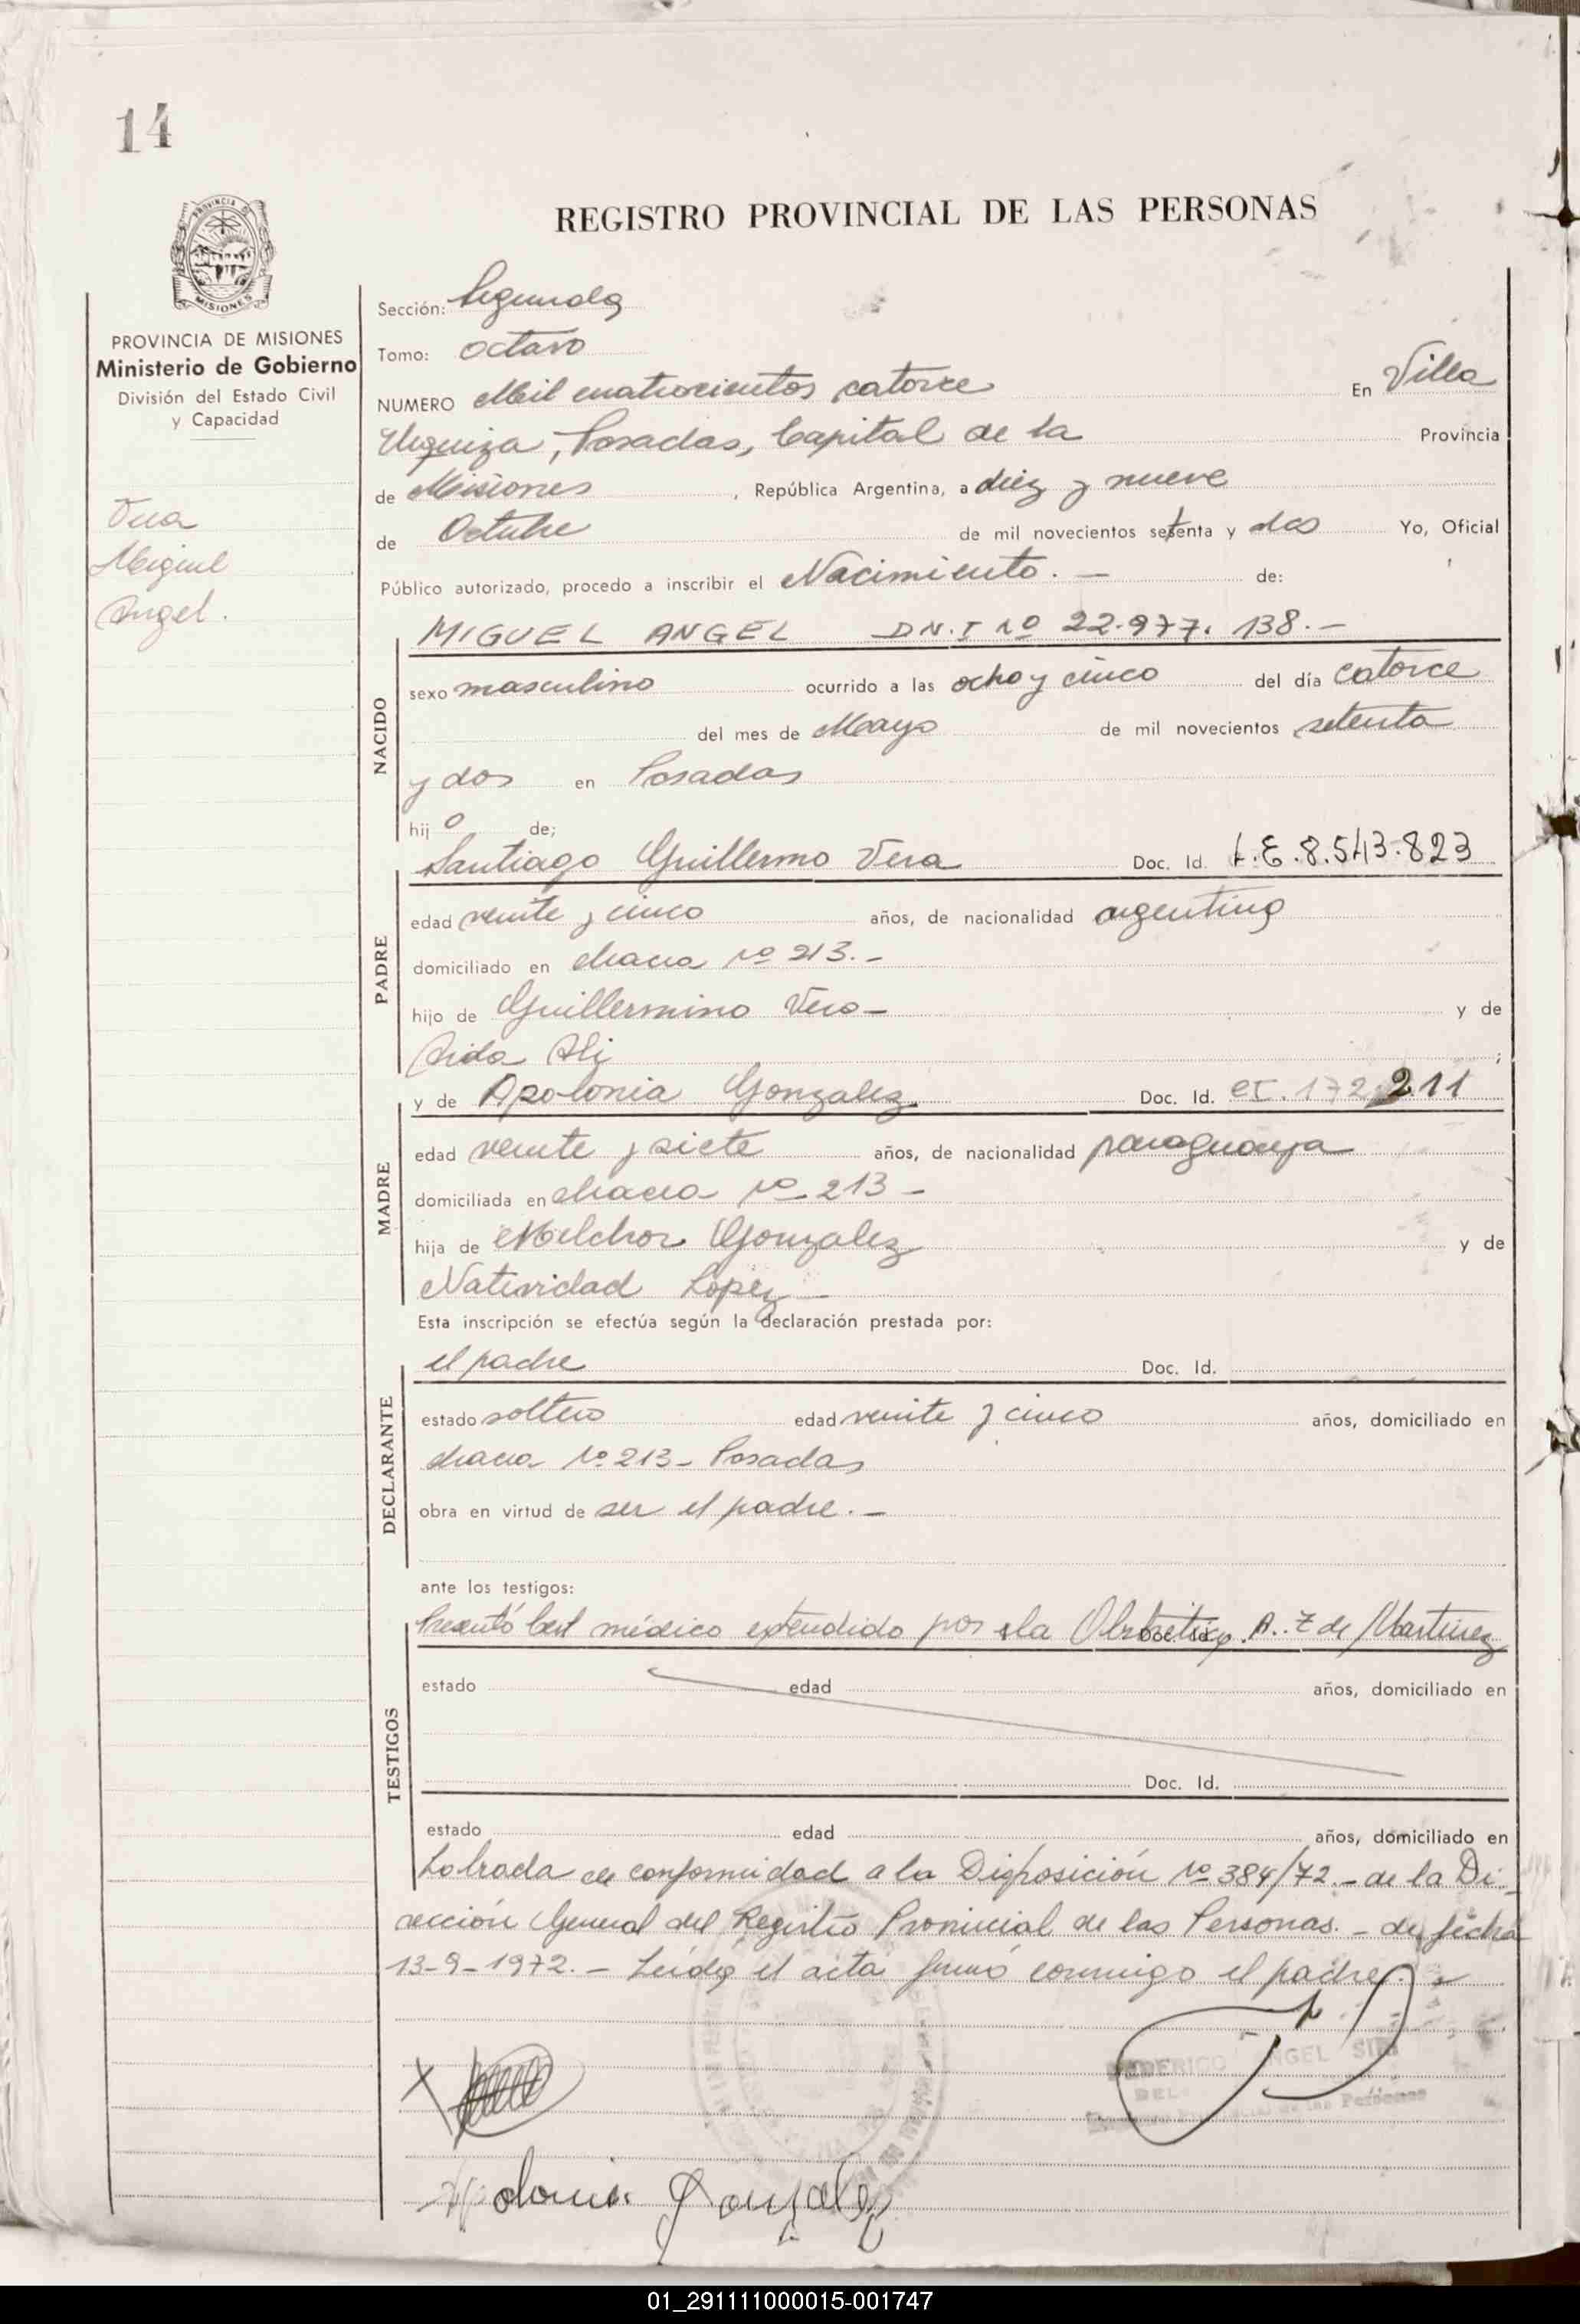 14
PROVINCIA DE
MISIONES
REGISTRO PROVINCIAL DE LAS PERSONAS
PROVINCIA DE MISIONES
Ministerio de Gobierno
División del Estado Civil
y Capacidad
Vera
Miguel
Angel.
Sección: Segunda
Tomo: octavo
NUMERO Mil cuatrocientos catorce En Villa
Urquiza, Posadas, Capital de la Provincia
de Misiones, República Argentina, a diez y nueve
de Octubre de mil novecientos setenta y dos Yo, Oficial
Público autorizado, procedo a inscribir el Nacimiento. — de:
MIGUEL ANGEL D.N.I Nº 22.977.138.—
NACIDO
sexo masculino ocurrido a las ocho y cinco del día catorce
del mes de Mayo de mil novecientos setenta
y dos en Posadas
hijo de;
Santiago Guillermo Vera Doc. Id. L.E.8.543.823
PADRE
edad veinte y cinco años, de nacionalidad argentino
domiciliado en chacra Nº 213.-
hijo de Guillermino Vera - y de
Aida Ali ;
y de Apolonia Gonzalez Doc. Id. CI. 172.211
MADRE
edad veinte y siete años, de nacionalidad paraguaya
domiciliada en chacra Nº 213 -
hija de Melchor Gonzalez y de
Natividad Lopez -
Esta inscripción se efectúa según la declaración prestada por:
el padre Doc. Id.
DECLARANTE
estado soltero edad veinte y cinco años, domiciliado en
chacra Nº 213 - Posadas
obra en virtud de ser el padre. —
ante los testigos:
Presentó Cert médico extendido por la Obstetrica. A. Z de Martinez
TESTIGOS
estado edad años, domiciliado en
Doc. Id.
estado edad años, domiciliado en
Labrada de conformidad a la Disposición Nº 384/72.- de la Di-
rección General del Registro Provincial de las Personas. - de fecha
13-9-1972. - Leída el acta firmó conmigo el padre. -
X
ANGEL
de las Personas
Apolonia Gonzalez
01_291111000015-001747